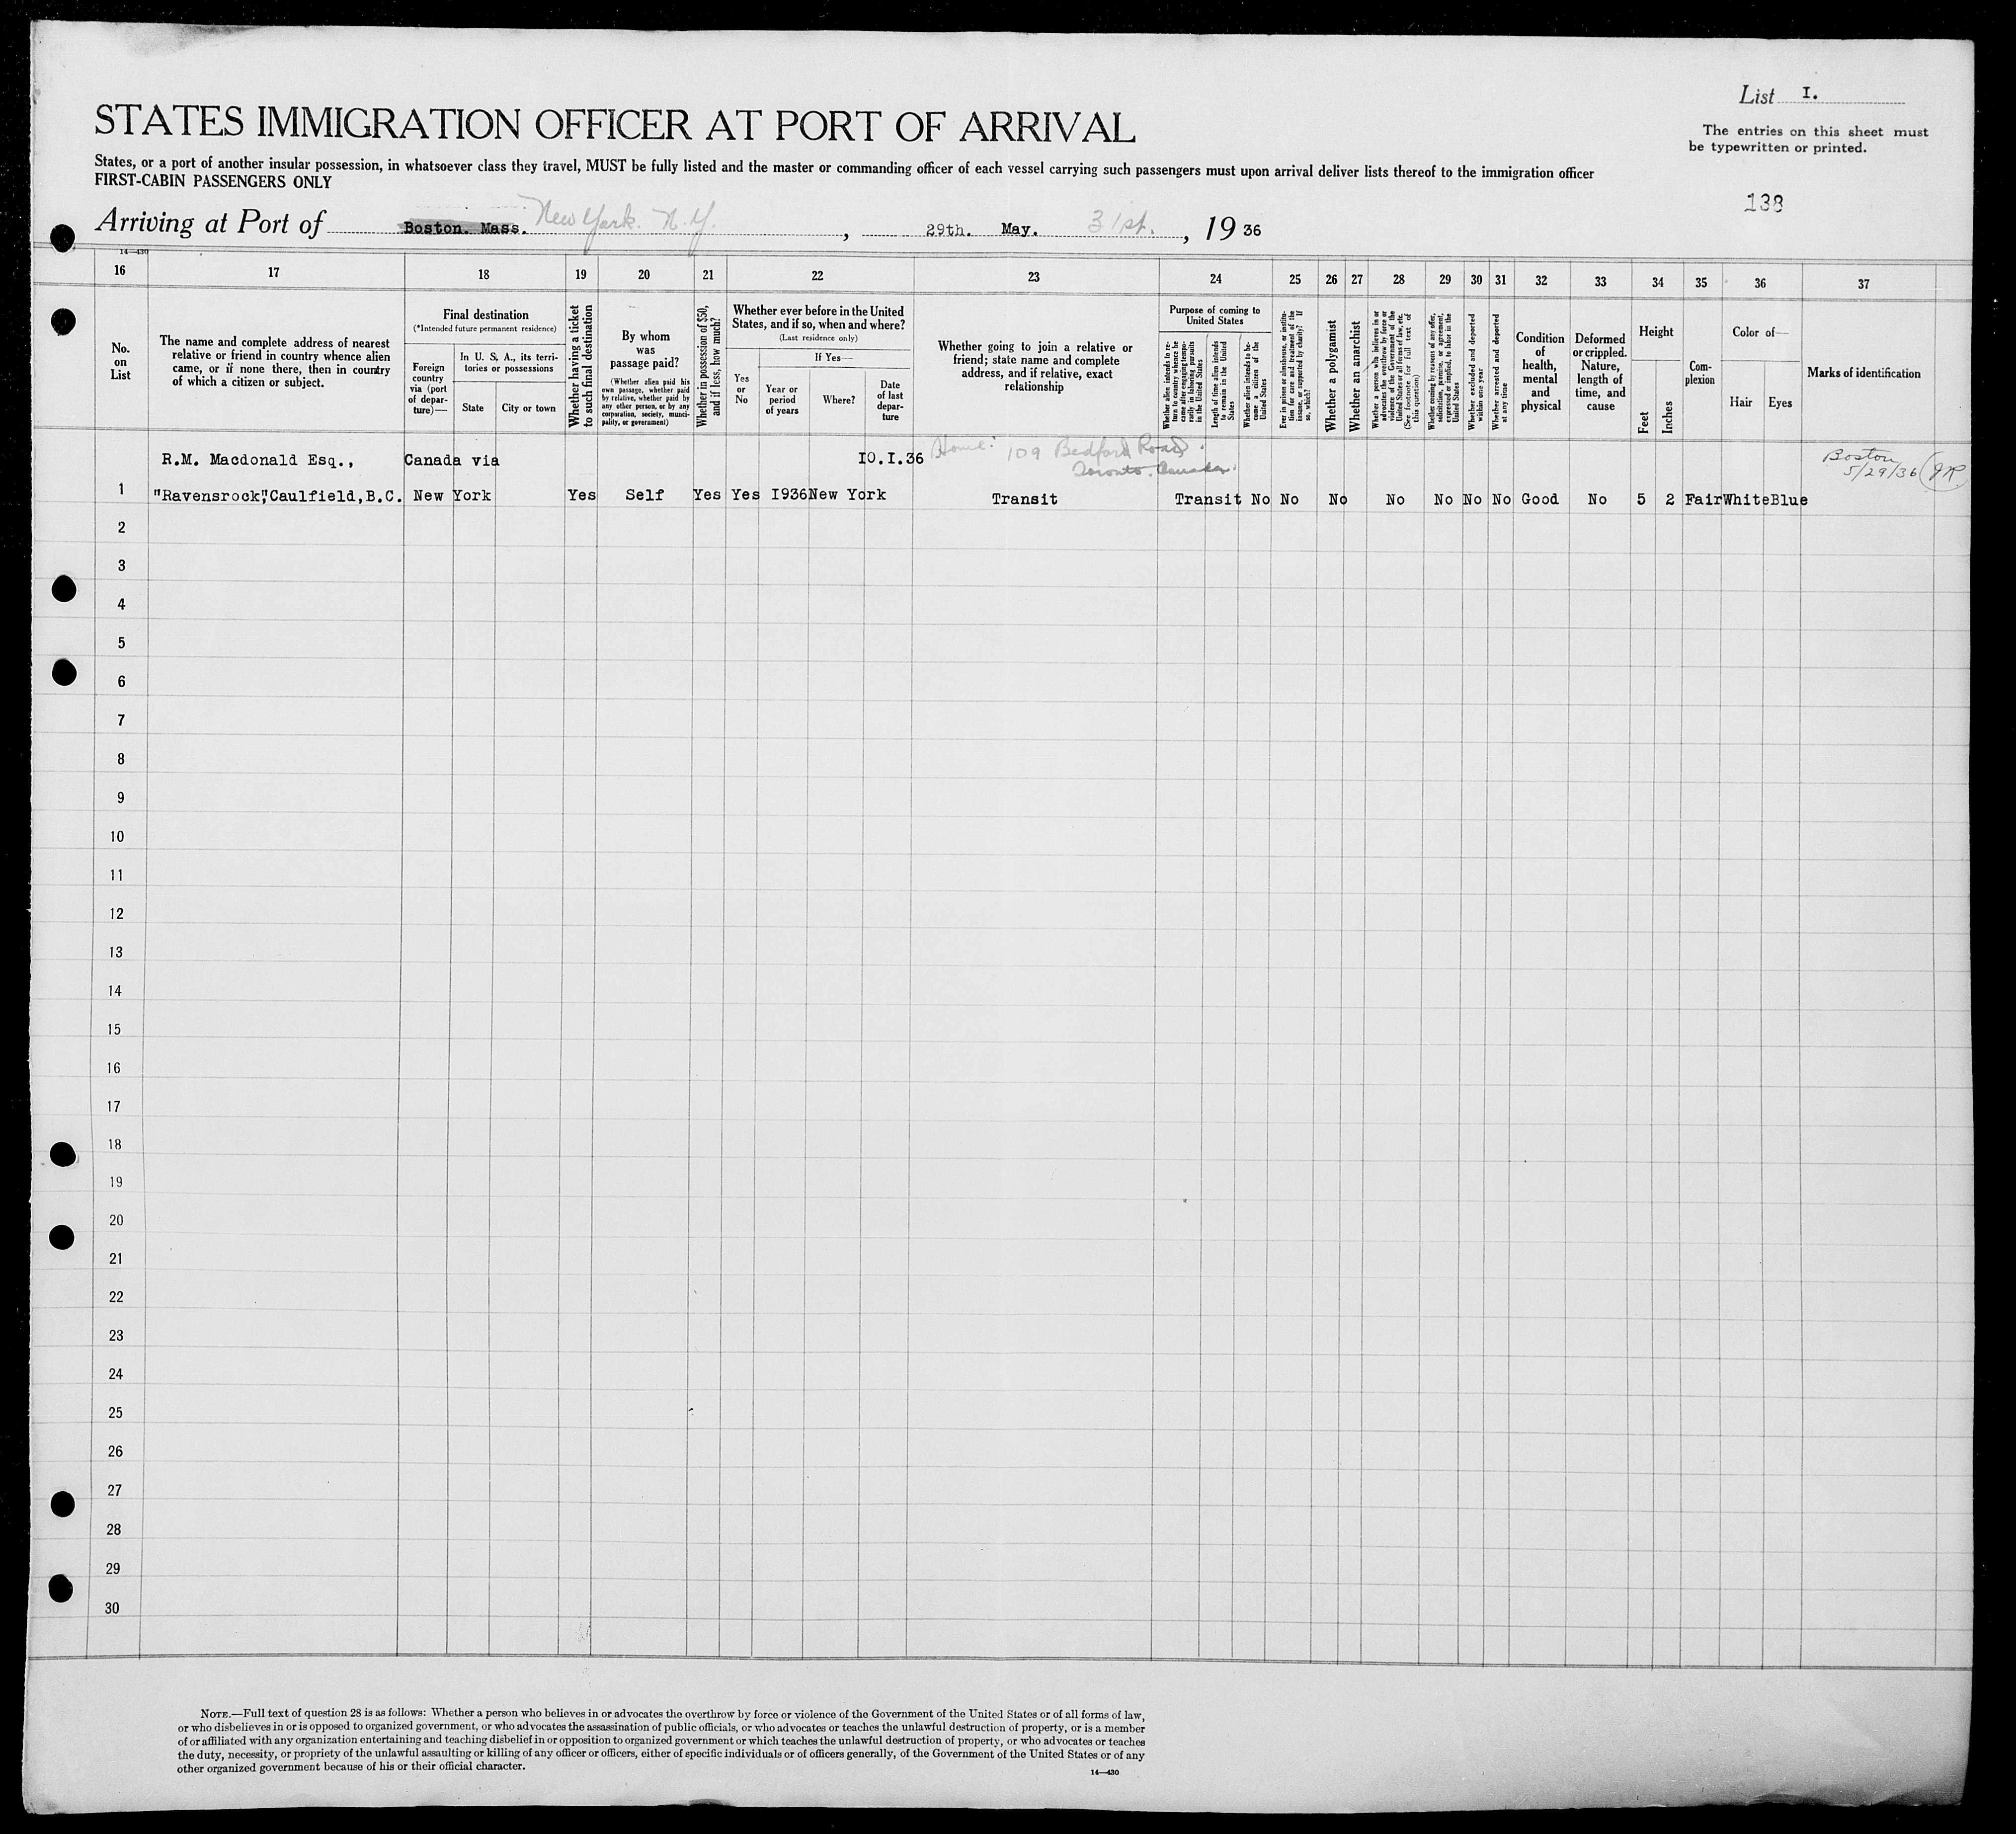 List I.
The entries on this sheet must
be typewritten or printed.
138
STATES IMMIGRATION OFFICER AT PORT OF ARRIVAL
States, or a port of another insular possession, in whatsoever class they travel, MUST be fully listed and the master or commanding officer of each vessel carrying such passengers must upon arrival deliver lists thereof to the immigration officer
FIRST-CABIN PASSENGERS ONLY
Arriving at Port of Boston. Mass. New York. N.Y. , 29th. May. 31st. , 19 36
14—430
16 17 18 19 20 21 22 23 24 25 26 27 28 29 30 31 32 33 34 35 36 37
No.
on
List
The name and complete address of nearest
relative or friend in country whence alien
came, or if none there, then in country
of which a citizen or subject.
Final destination
(*Intended future permanent residence)
Foreign
country
via (port
of depar-
ture)—
In U. S. A., its terri-
tories or possessions
State
City or town
Whether having a ticket
to such final destination
By whom
was
passage paid?
(Whether alien paid his
own passage, whether paid
by relative, whether paid by
any other person, or by any
corporation, society, munici-
pality, or government)
Whether in possession of $50,
and if less, how much?
Whether ever before in the United
States, and if so, when and where?
(Last residence only)
Yes
or
No
If Yes—
Year or
period
of years
Where?
Date
of last
depar-
ture
Whether going to join a relative or
friend; state name and complete
address, and if relative, exact
relationship
Purpose of coming to
United States
Whether alien intends to re-
turn to country whence he
came after engaging tempo-
rarily in laboring pursuits
in the United States
Length of time alien intends
to remain in the United
States
Whether alien intends to be-
come a citizen of the
United States
Ever in prison or almshouse, or institu-
tion for care and treatment of the
insane, or supported by charity? If
so, which?
Whether a polygamist
Whether an anarchist
Whether a person who believes in or
advocates the overthrow by force or
violence of the Government of the
United States or all forms of law, etc.
(See footnote for full text of
this question)
Whether coming by reasons of any offer,
solicitation, promise, or agreement,
expressed or implied, to labor in the
United States
Whether excluded and deported
within one year
Whether arrested and deported
at any time
Condition
of
health,
mental
and
physical
Deformed
or crippled.
Nature,
length of
time, and
cause
Height
Feet
Inches
Com-
plexion
Color of—
Hair
Eyes
Marks of identification
R.M. Macdonald Esq., Canada via 10.I.36 Home: 109 Bedford Road.
Toronto. Canada.
Boston
5/29/36 JR
1 "Ravensrock", Caulfield, B.C. New York Yes Self Yes Yes I936 New York Transit Transit No No No No No No No Good No 5 2 Fair White Blue
2
3
4
5
6
7
8
9
10
11
12
13
14
15
16
17
18
19
20
21
22
23
24
25
26
27
28
29
30
NOTE.—Full text of question 28 is as follows: Whether a person who believes in or advocates the overthrow by force or violence of the Government of the United States or of all forms of law,
or who disbelieves in or is opposed to organized government, or who advocates the assassination of public officials, or who advocates or teaches the unlawful destruction of property, or is a member
of or affiliated with any organization entertaining and teaching disbelief in or opposition to organized government or which teaches the unlawful destruction of property, or who advocates or teaches
the duty, necessity, or propriety of the unlawful assaulting or killing of any officer or officers, either of specific individuals or of officers generally, of the Government of the United States or of any
other organized government because of his or their official character.
14—430